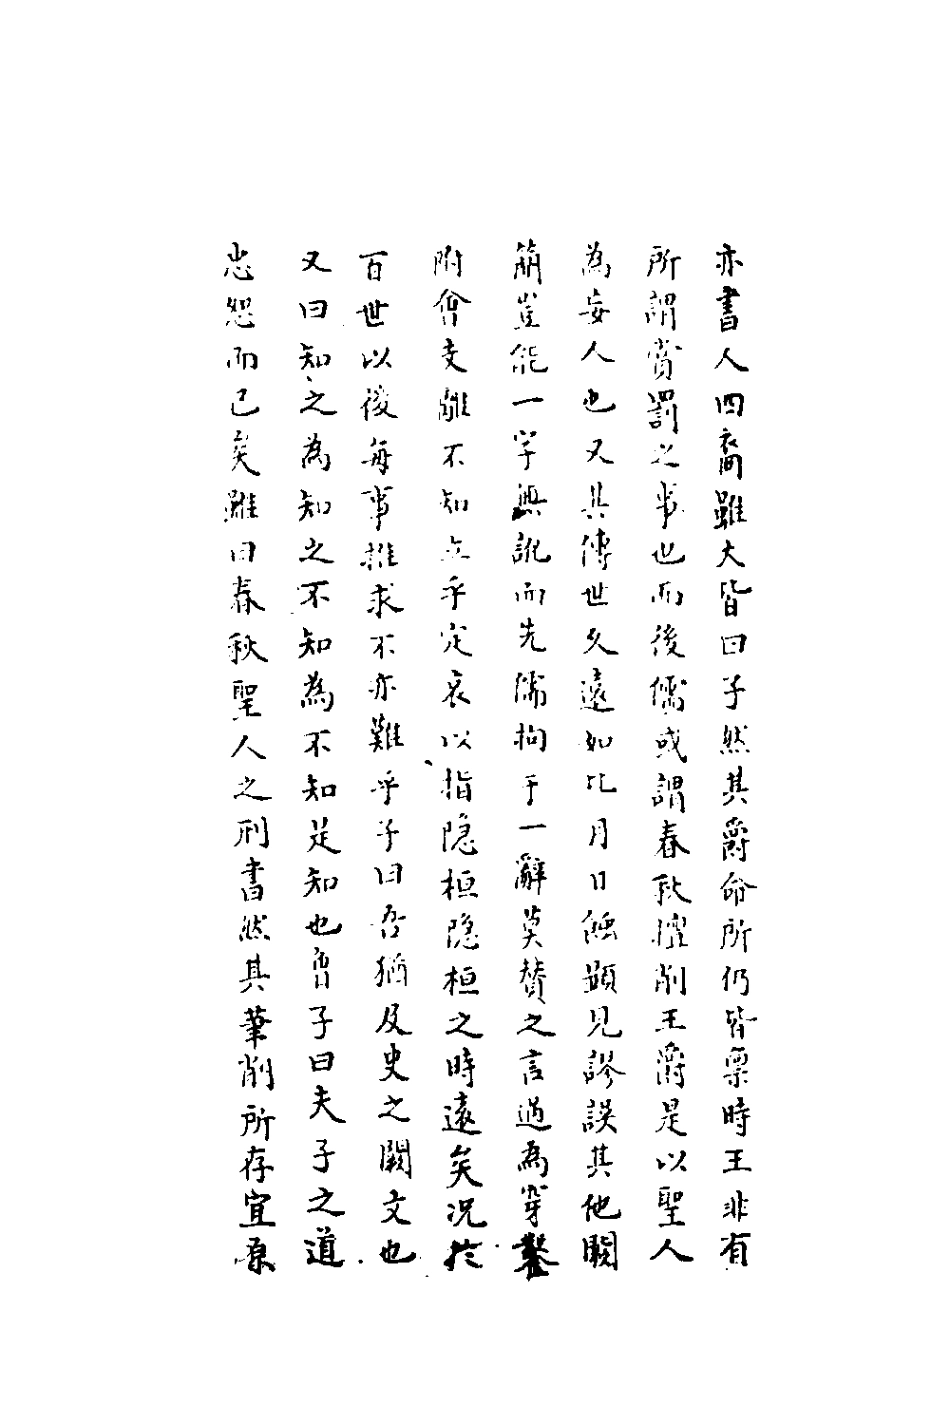 亦書人四裔雖大皆曰子然其爵命所仍皆稟時王非有
所謂賞罰之事也而後儒或謂春秋擅削王爵是以聖人
為妄人也又其傳世久遠如比月日蝕顯見謬誤其他闕
簡豈能一字無訛而先儒拘于一辭莫贊之言過為穿鑿
附會支離不知立乎定哀以指隐桓隐桓之時遠矣况於
百世以後每事推求不亦難乎子曰吾猶及史之闕文也
又曰知之為知之不知為不知是知也曾子曰夫子之道
忠恕而已矣雖曰春秋聖人之刑書然其筆削所存宜原